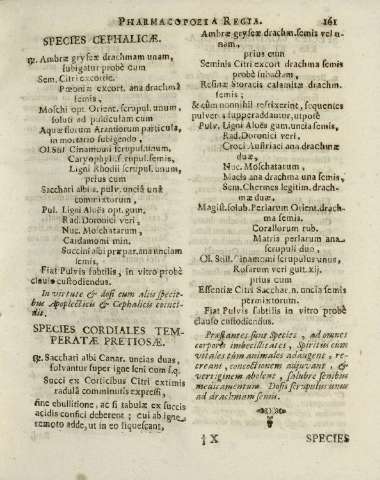 PHARMACOPOEIA REGIA. 161
SPECIES CEPHALICÆ.
℞. Ambræ gryseæ drachmam unam,
subigatur probè cum
Sem. Citri excortic.
Pœoniæ excort. ana drachmâ
semis,
Moschi opt. Orient. scrupul. unum,
soluti ad particulam cum
Aquæ florum Arantiorum particula,
in mortario subigendo,
Ol. Still. Cinamomi scrupul. unum,
Caryophil. scrupul. semis,
Ligni Rhodii scrupul. unum,
prius cum
Sacchari albi s. pulv. unciâ unâ
commixtorum,
Pul. Ligni Aloës opt. gum.
Rad. Doronici veri,
Nuc. Moschatarum,
Cardamomi min.
Succini albi præpar. ana unciam
semis,
Fiat Pulvis subtilis, in vitro probè
clauso custodiendus.
In virtute & dosi cum aliis specie-
bus Apoplecticis & Cephalicis coinci-
dit.
SPECIES CORDIALES TEM-
PERATÆ PRETIOSÆ.
℞. Sacchari albi Canar. uncias duas,
solvantur super igne leni cum s.q.
Succi ex Corticibus Citri extimis
radulâ comminutis expressi,
sine ebullitione, ac si tabulæ ex succis
acidis confici deberent; cui ab igne
remoto adde, ut in eo liquescant,
Ambræ gryseæ drachm. semis vel u-
nam,
prius cum
Seminis Citri excort. drachma semis
probè subactam,
Resinæ Storacis calamitæ drachm.
semis;
& cùm nonnihil refrixerint, sequentes
pulveres supperaddantur, utpotè
Pulv. Ligni Aloës gum. uncia semis,
Rad. Doronici veri,
Croci Austriaci ana drachmæ
duæ,
Nuc. Moschatarum,
Macis ana drachma una semis,
Sem. Chermes legitim. drach-
mæ duæ,
Magist. solub. Perlarum Orient. drach-
ma semis.
Corallorum rub.
Matris perlarum ana
scrupuli duo,
Ol. Still. Cinamomi scrupulus unus,
Rosarum veri gutt. xij.
prius cum
Essentiæ Citri Sacchar. n. uncia semis
permixtorum.
Fiat Pulvis subtilis in vitro probè
clauso custodiendus.
Præstantes sunt Species, ad omnes
corporis imbecillitates, Spiritus cum
vitales tùm animales adaugent, re-
creant, concoctionem adjuvant, &
vertiginem abolent, salubre sensibus
medicamentum. Dosis scrupulus unus
ad drachmam semis.
‡ X SPECIES